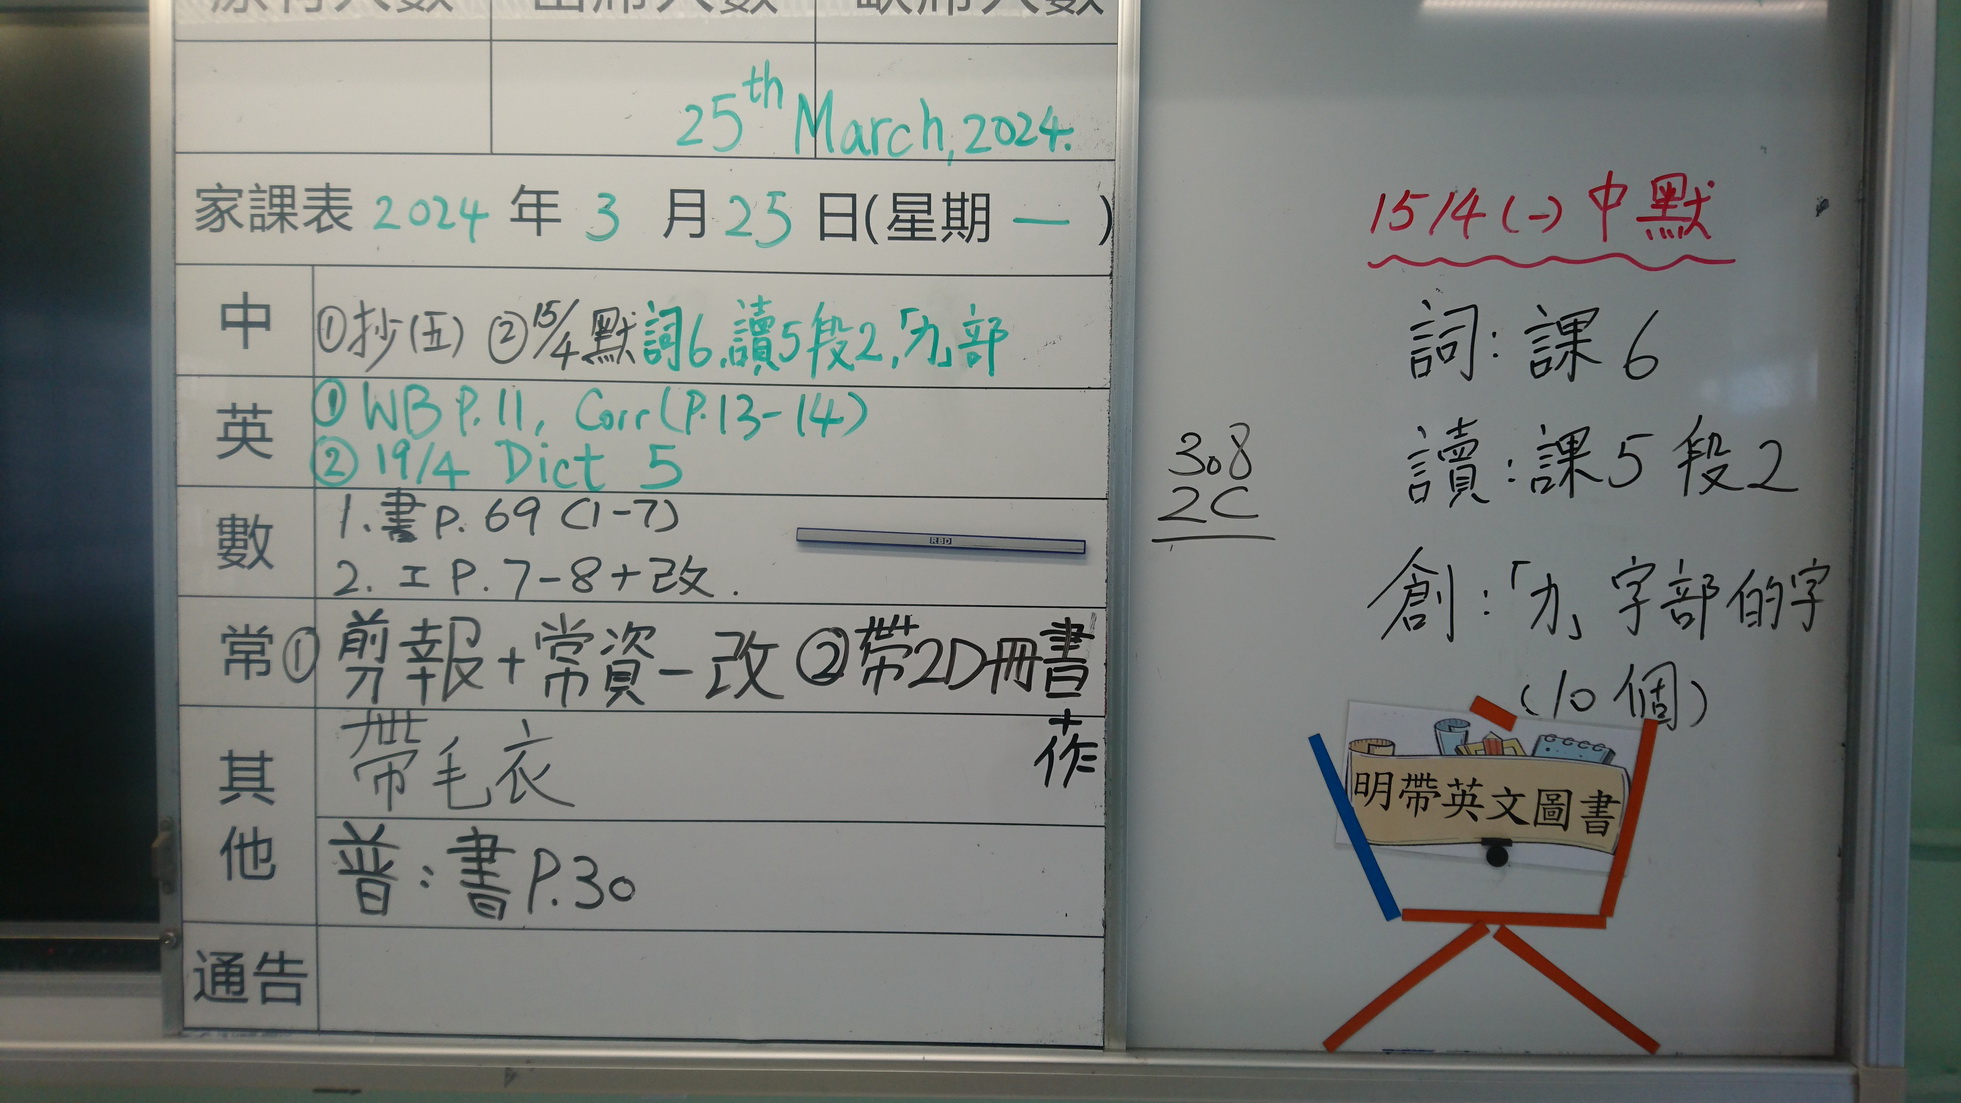 原有人數 出席人數 缺席人數
25th March, 2024.
家課表 2024 年 3 月 25 日(星期 一 )
中 ①抄(五) ②15/4默詞6,讀5段2,「力」部
英 ① WB P.11, Corr(P.13-14)
② 19/4 Dict 5
數 1. 書 P. 69 (1-7)
2. 工 P. 7-8+改.
RBD
常 ① 剪報+常資-改 ②帶2D冊書
+作
其他 帶毛衣
普:書P.30
通告
15/4(一)中默
詞:課6
讀:課5段2
創:「力」字部的字
(10個)
308
2C
明帶英文圖書